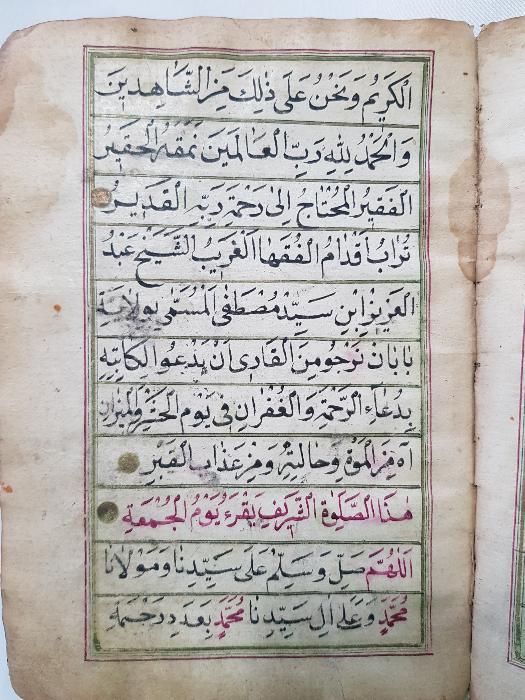 الْكَرِيمُ وَنَحْنُ عَلَى ذٰلِكَ مِنَ الشَّاهِدِينَ
وَالْحَمْدُ لِلّٰهِ رَبِّ الْعَالَمِينَ نَمَقَهُ الْحَقِيرُ
الْفَقِيرُ الْمُحْتَاجُ اِلٰى رَحْمَةِ رَبِّهِ الْقَدِيرُ
تُرَابُ اَقْدَامُ الْفُقَهَا الْغَرِيبُ الشَّيْخُ عَبْدُ
الْعَزِيزِ ابْنِ سَيِّدْ مُصْطَفَى الْمُسَمّٰى بِوِلَايَةِ
بَابَانْ نَرْجُو مِنَ الْقَارِى اَنْ يَدْعُو الْكَاتِبَهِ
بِدُعَاءِ الرَّحْمَةِ وَالْغُفْرَانِ فِى يَوْمِ الْحَشْرِ وَالْمِيزَانِ
آه مِنَ الْمَوْةِ وَحَالَتِهِ وَمِنْ عَذَابِ الْقَبْرِ
هٰذَا الصَّلَوٰةِ الشَّرِيفِ يَقْرَءُ يَوْمُ الْجُمْعَةِ
اَللّٰهُمَّ صَلِّ وَسَلِّمْ عَلَى سَيِّدِنَا وَمَوْلَانَا
مُحَمَّدٍ وَعَلَى اٰلِ سَيِّدِنَا مُحَمَّدٍ بِعَدَدِ رَحْمَةِ